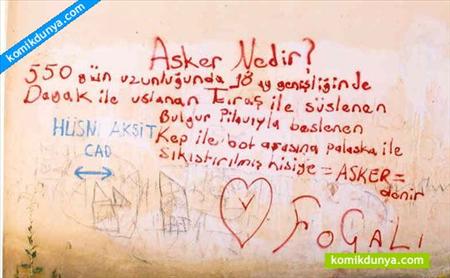 komikdunya.com
Asker Nedir?
550 gün uzunluğunda 18 ay genişliğinde
Dayak ile uslanan Tıraş ile süslenen
Bulgur Pilavıyla beslenen
Kep ile bot arasına palaska ile
sıkıştırılmış kişiye = ASKER =
denir
HÜSNÜ AKŞİT
CAD
FOGALI
komikdunya.com